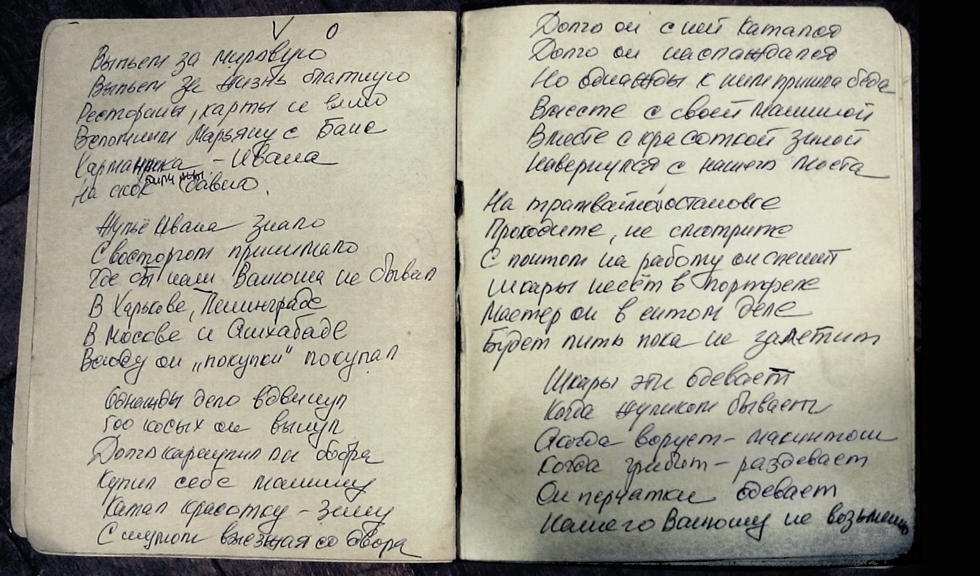 Выпьем за мировую
Выпьем за жизнь блатную
Рестораны, карты и вино
Вспомним Марьяну с Бана
Карманника - Ивана
На скок давно.
Жульё Ивана знало
С восторгом принимало
Где бы наш Ванюша не бывал
В Харькове, Ленинграде
В Москве и Ашхабаде
Всюду он „покупки" покупал
Однажды дело вдвинул
500 косых он вынул
Долго караулил он бобра
Купил себе машину
Катал красотку - Зину
С шумом выезжая со двора
Долго он с ней катался
Долго он наслаждался
Но однажды к ним пришла беда
Вместе с своей машиной
Вместе с красоткой Зиной
Навернулся с нашего моста
На трамвайной остановке
Проходите, не смотрите
С понтом на работу он спешит
Шкары несёт в портфеле
Мастер он в ентом деле
Будет пить пока не заметит
Шкары эти одевает
Когда жуликом бывает
А когда ворует - макинтош
Когда грабит - раздевает
Он перчатки одевает
Нашего Ванюшу не возьмёшь